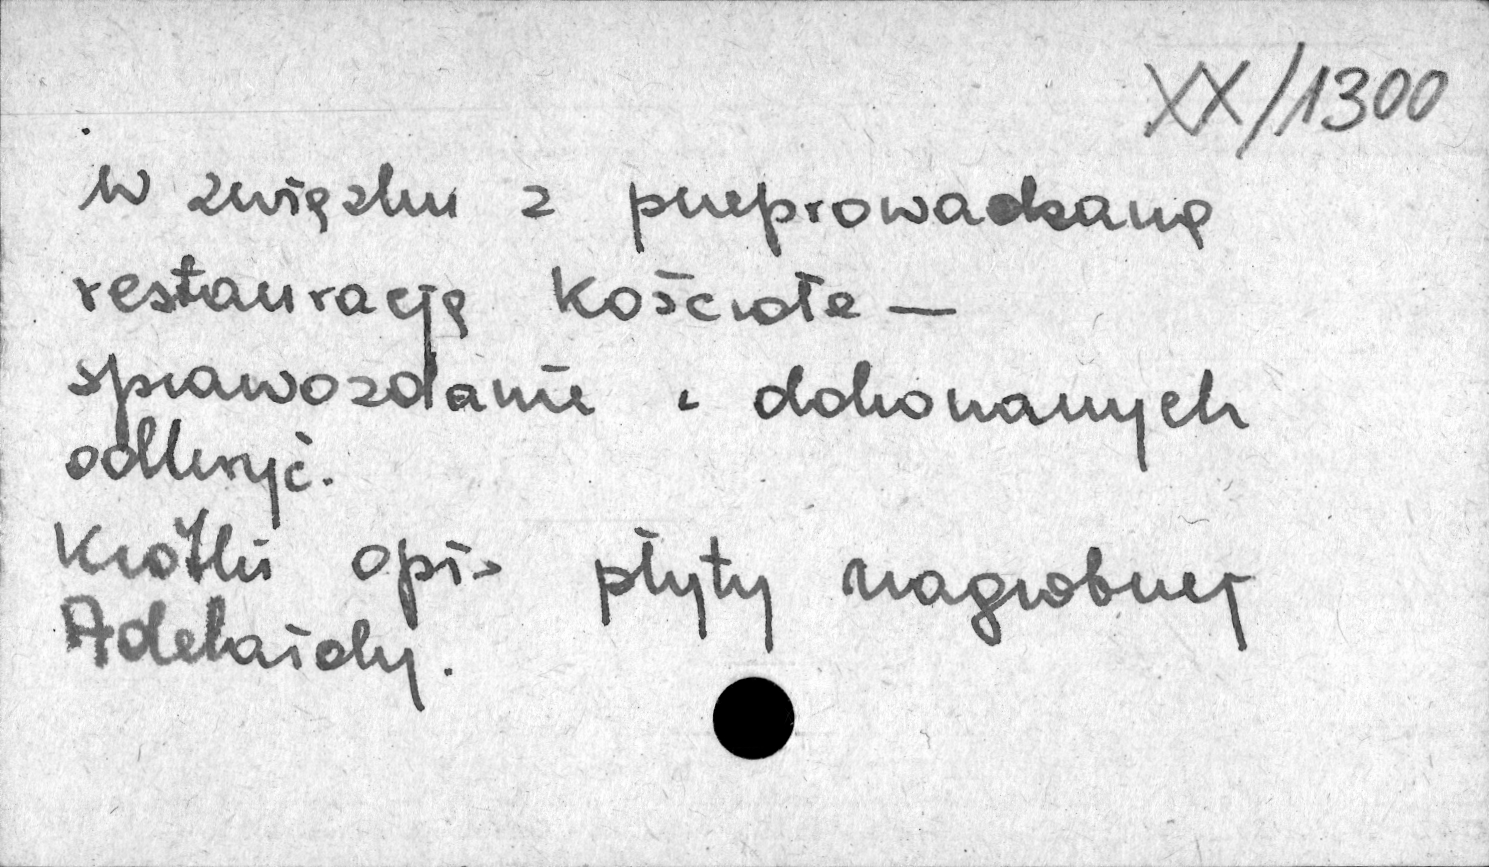 XX/1300
W związku z przeprowadzaną
restauracją kościoła —
sprawozdanie z dokonanych
odkryć.
Krótki opis płyty nagrobnej
Adelaidy.